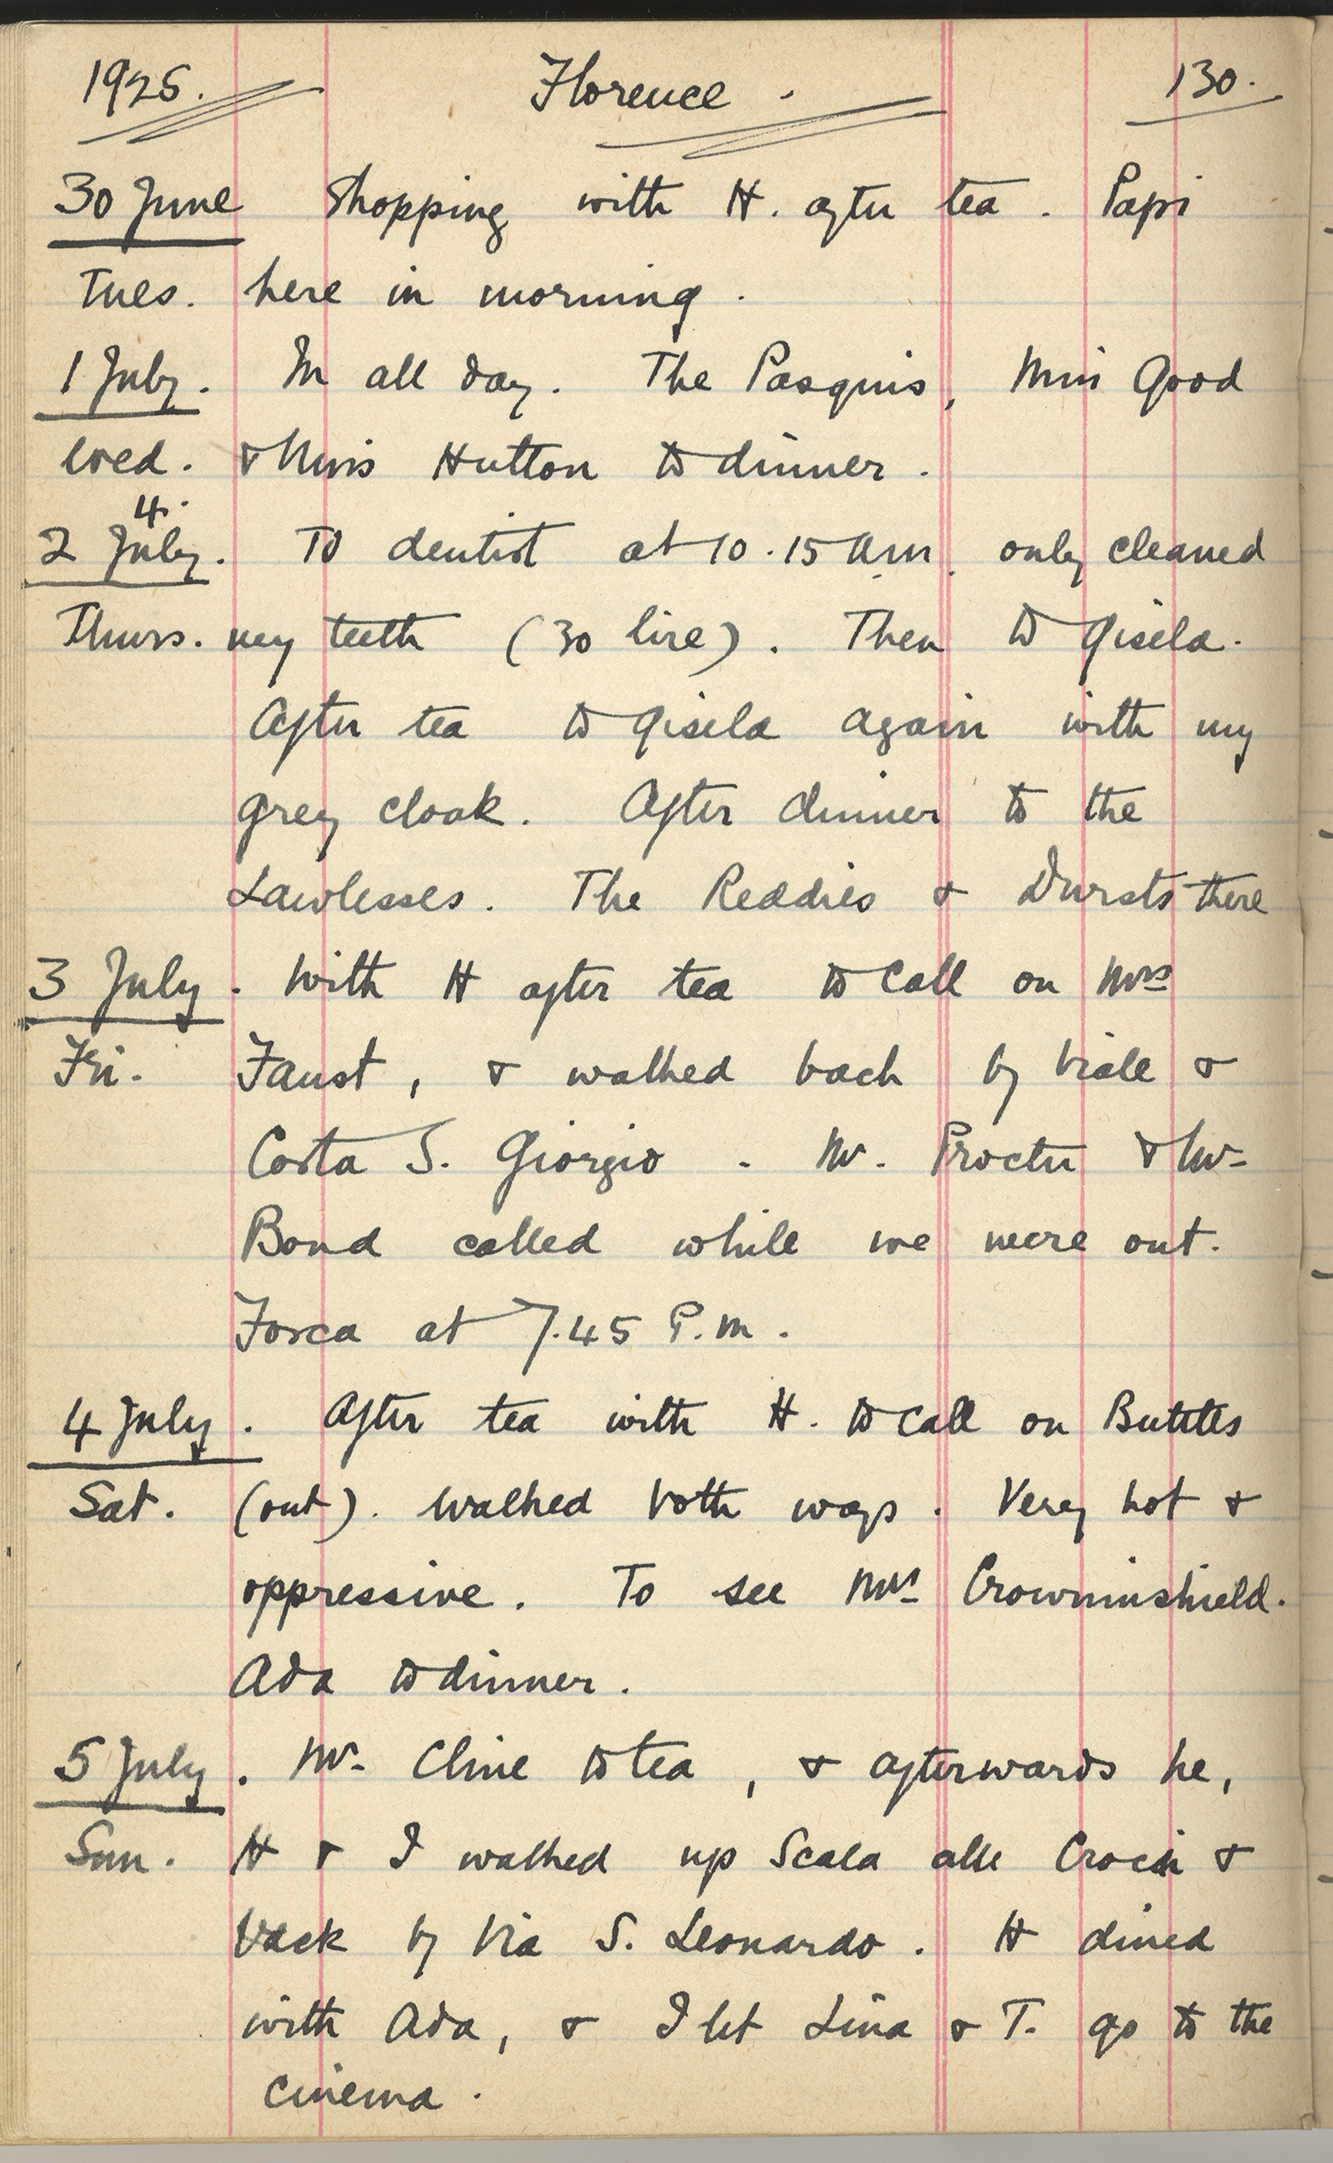 1925. Florence. 130.
30 June Shopping with H. after tea. Papi
Tues. here in morning.
1 July. In all day. The Pasquis, Miss Good
Wed. & Miss Hutton to dinner.
4.
2 July. To dentist at 10.15 a.m. only cleaned
Thurs. my teeth (30 lire). Then to Gisela.
After tea to Gisela again with my
grey cloak. After dinner to the
Lawlesses. The Reddies & Dursts there
3 July. With H after tea to call on Mrs
Fri. Faust, & walked back by Viale &
Costa S. Giorgio. Mr. Procter & Mr.
Bond called while we were out.
Forca at 7.45 P.m.
4 July. After tea with H. to call on Buttles
Sat. (out). Walked both ways. Very hot &
oppressive. To see Mrs Crowninshield.
Ada to dinner.
5 July. Mr. Cline to tea, & afterwards he,
Sun. H & I walked up Scala alle Croci &
back by Via S. Leonardo. H dined
with Ada, & I let Lina & T. go to the
cinema.